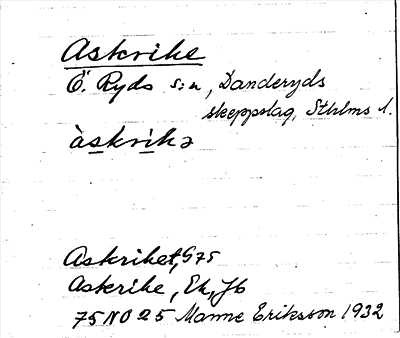 Askrike
Ö. Ryds s:n, Danderyds
skeppslag, Sthlms l.
àskrikə
Askriket, G75
Askrike, Ek, Jb
75 NO 25 Manne Eriksson 1932